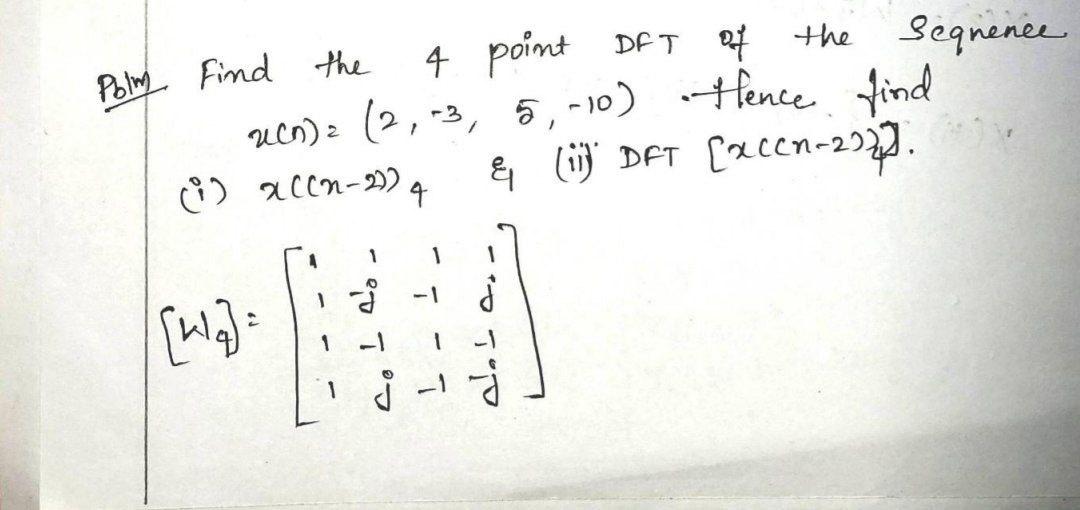 Pblm Find the 4 point DFT of the Sequence
x(n) = (2, -3, 5, -10) . Hence find
(i) x((n-2))4 & (ii) DFT [x((n-2))4].
[W4] = [ 1 1 1 1
1 -j -1 j
1 -1 1 -1
1 j -1 -j ]